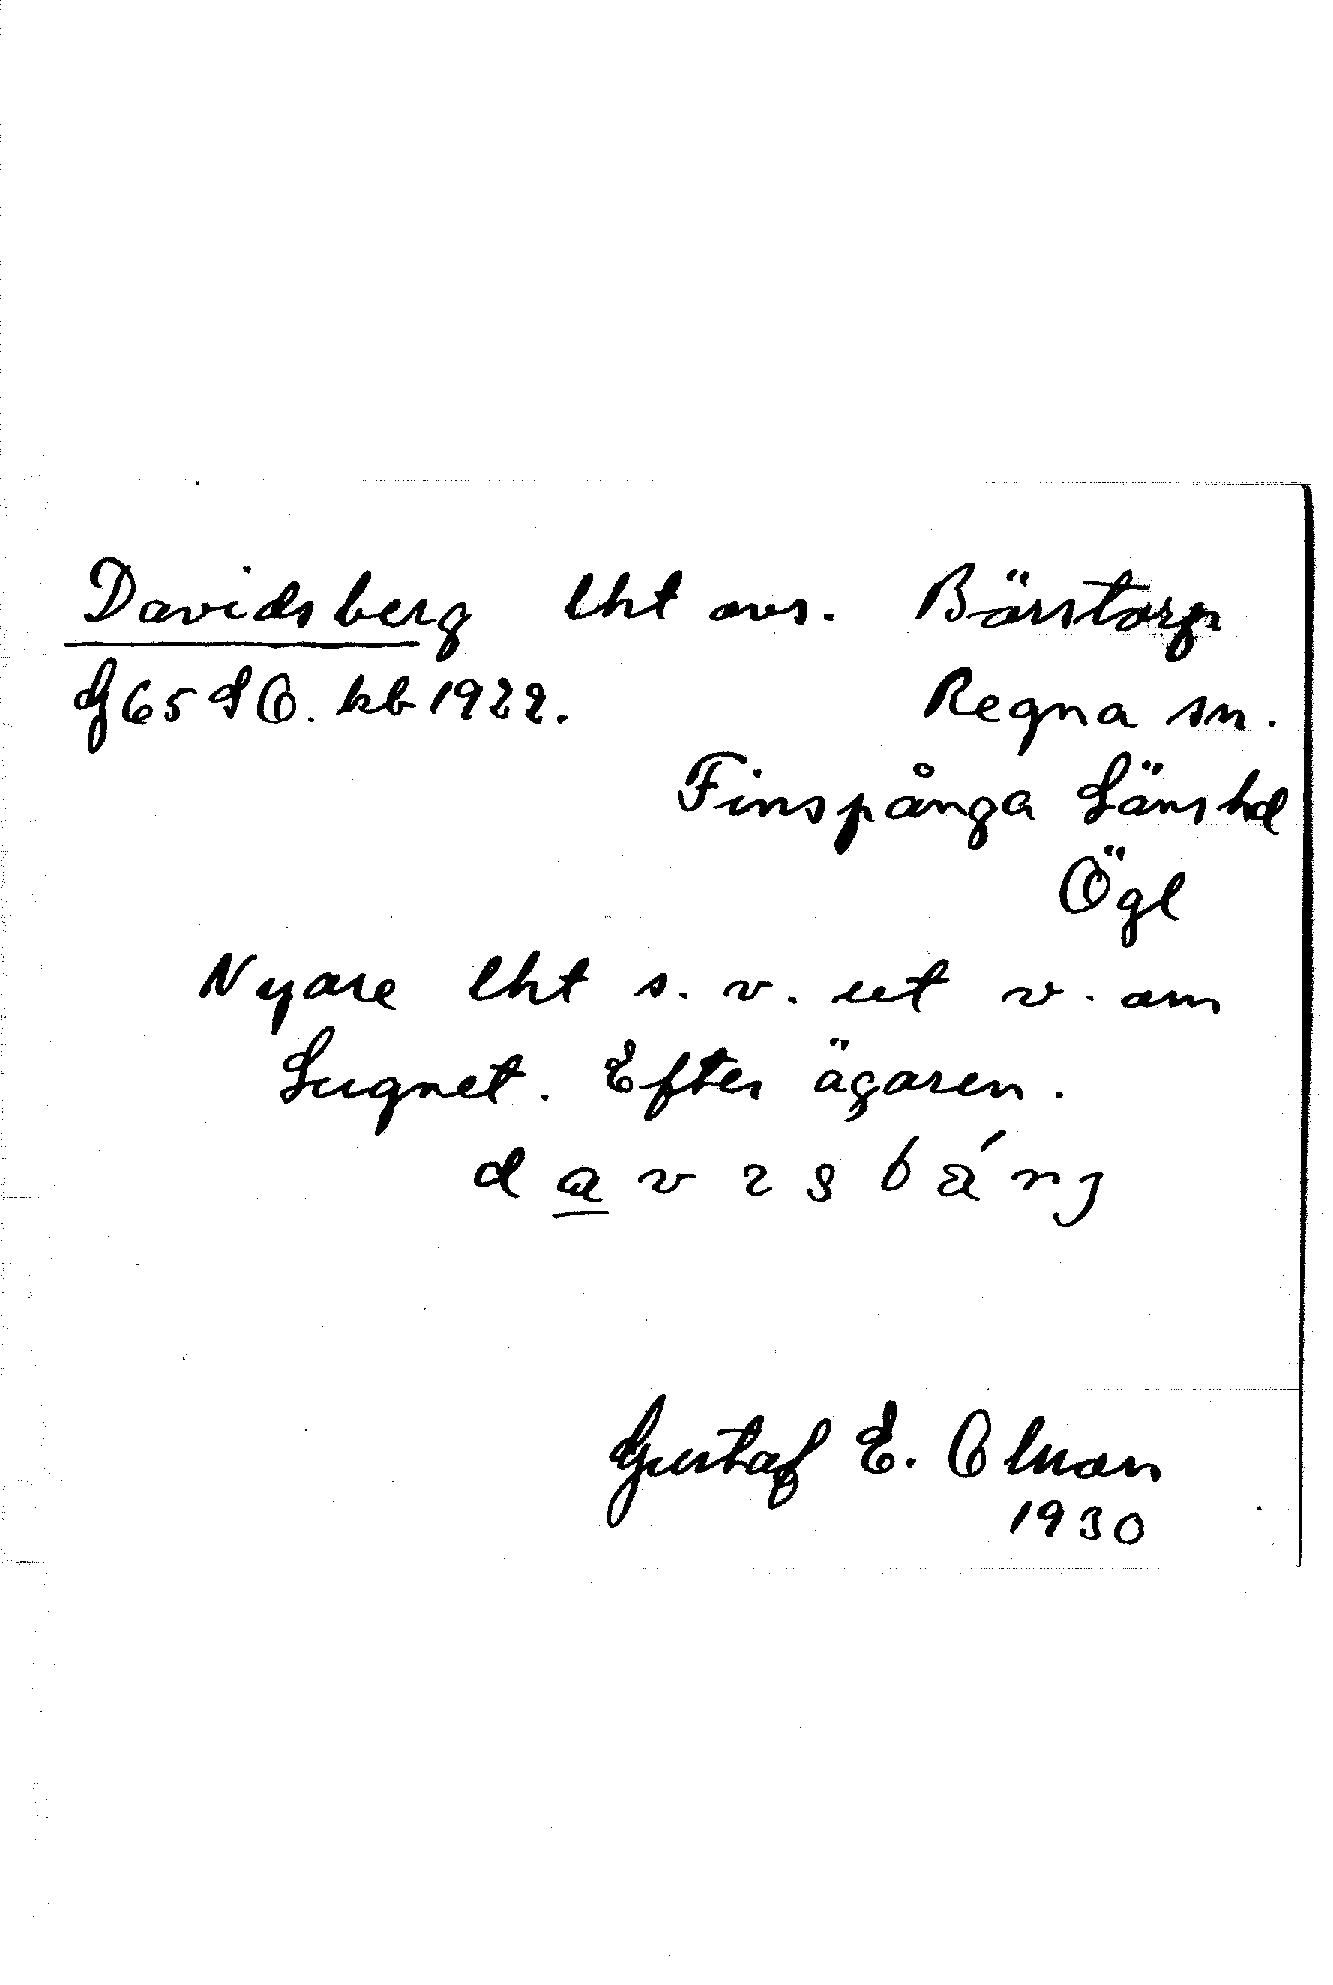 Davidsberg lht avs. Börstorp
G65 SO. kb 1922. Regna sn.
Finspånga Länshd
Ögl
Nyare lht s. v. ut v. om
Lugnet. Efter ägaren.
Gustaf E. Olson
1930